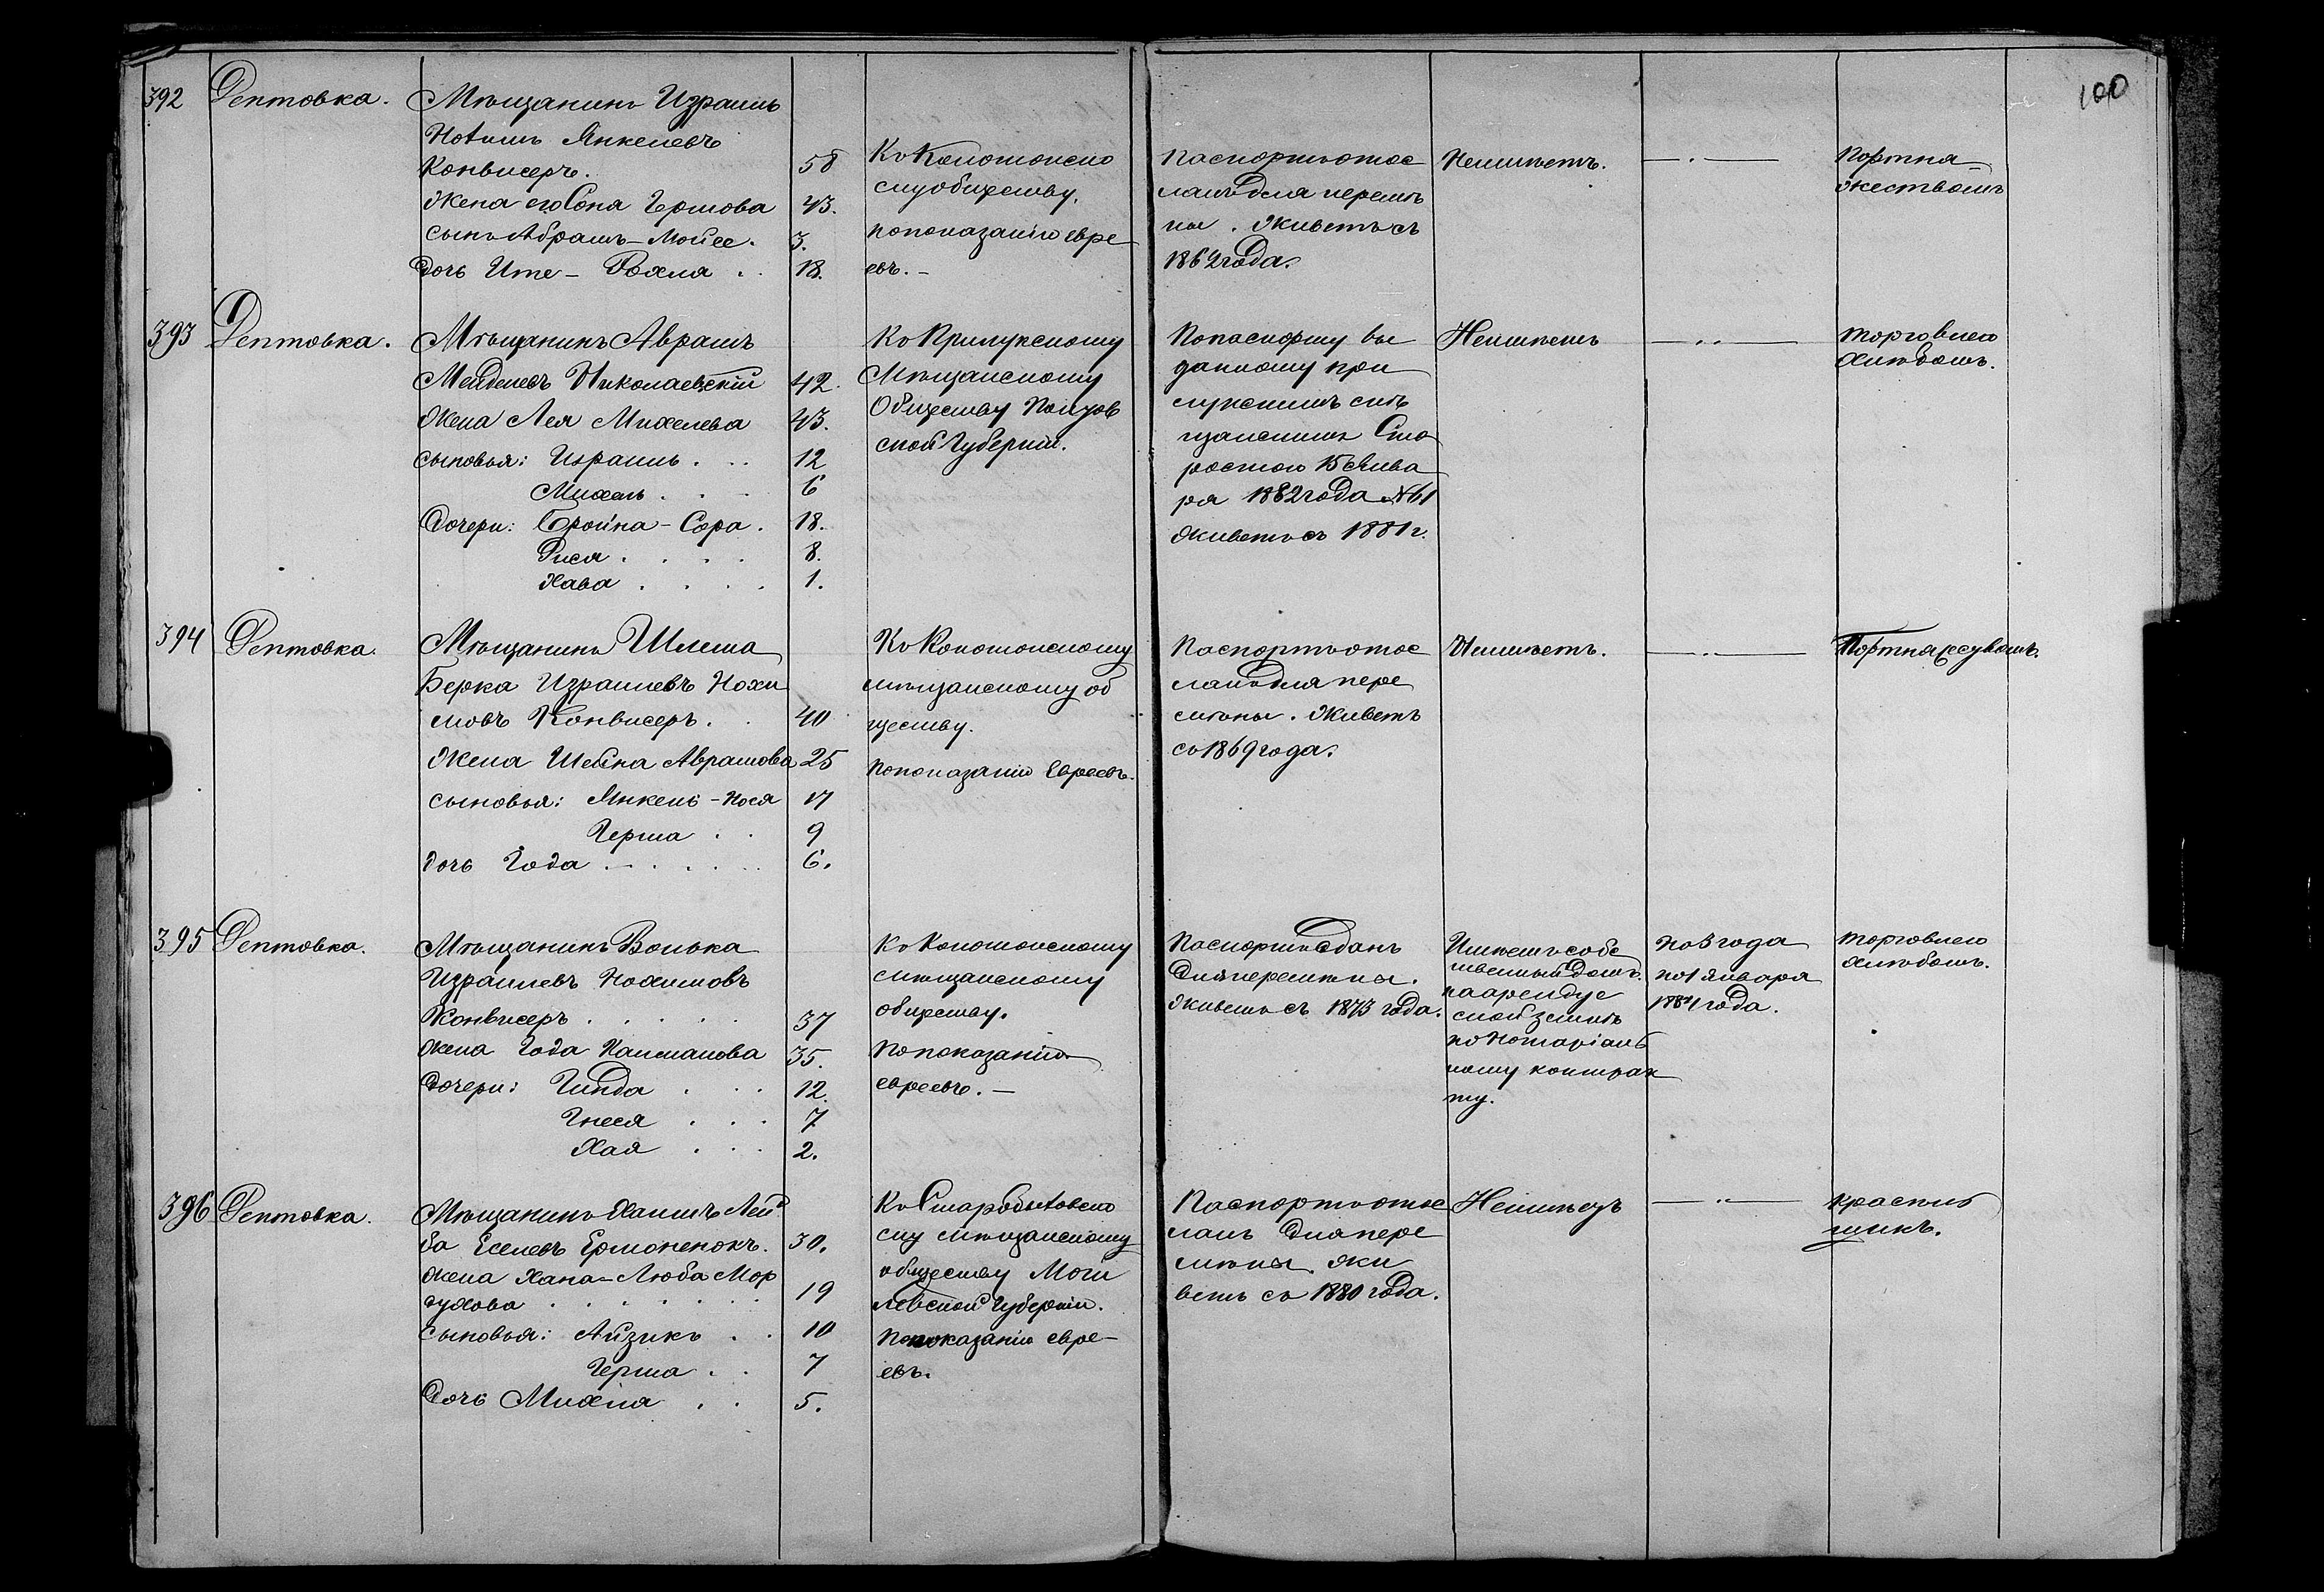 100
392 Дептовка. Мѣщанинъ Израиль
Нохимъ Янкелевъ
Конвисеръ. 58
Жена его Соня Гершова 43.
сынъ Абрамъ-Мойсе. 3.
Дочь Ите-Рохля . . 18.
Къ Конотопско
му обществу.
по показанію евре
евъ. –
Паспортъ отос
ланъ для перемѣ
ны. Живетъ съ
1862 года.
Неимѣетъ.
— . —
Портня
жествомъ
393 Дептовка. Мѣщанинъ Аврамъ
Менделевъ Николаевскій 42.
Жена Лея Михелева 43.
сыновья: Израиль . . . 12
Михель . . . 6
Дочери: Бройна-Сора . 18.
Рися . . . . 8.
Хава . . . . 1.
Къ Прилукскому
Мѣщанскому
Обществу Полтав
ской Губерніи.
По паспорту вы
данному при
лукскимъ мѣ
щанскимъ Ста
ростою 15 Янва
ря 1882 года №61
живетъ съ 1881 г.
Неимѣетъ
— . . —
торговлею
хлѣбомъ.
394 Дептовка. Мѣщанинъ Шлема
Берка Израилевъ Нохи
мовъ Конвисеръ. . 40
Жена Шейна Аврамова 25
сыновья: Янкель-Нося 17
Герша . . 9
дочь Года . . . . . . 6.
Къ Конотопскому
мѣщанскому об
ществу.
по показанію Евреевъ.
Паспортъ отос
ланъ для пере
мѣны. Живетъ
съ 1869 года.
Неимѣетъ.
— . . —
395 Дептовка. Мѣщанинъ Волька
Израилевъ Нохимовъ
Конвисеръ . . . . . 37
Жена Года Калманова 35.
Дочери: Гинда . . . 12.
Гнеся . . . 7
Хая . . . 2.
Къ Конотопскому
мѣщанскому
обществу.
По показанію
евреевъ. –
Паспортъ сданъ
для перемѣны.
Живетъ съ 1873 года.
Имѣетъ собс
твенный домъ.
на арендуе
мой землѣ
по Нотаріаль
ному контрак
ту.
на 3 года
по 1 января
1884 года.
торговлею
хлѣбомъ.
396 Дептовка. Мѣщанинъ Хаимъ Лей
ба Еселевъ Ермоненокъ. 30.
жена Хана-Люба Мор
духова . . . . . . . 19
сыновья: Айзикъ . . 10
Герша . . 7
Дочь Михля . . 5.
Къ Старобыховско
му мѣщанскому
обществу Моги
левской Губерніи.
По показанію евре–
евъ.
Паспортъ отос
ланъ для пере
мѣны. жи
ветъ съ 1880 года.
— . . —
красиль
щикъ.